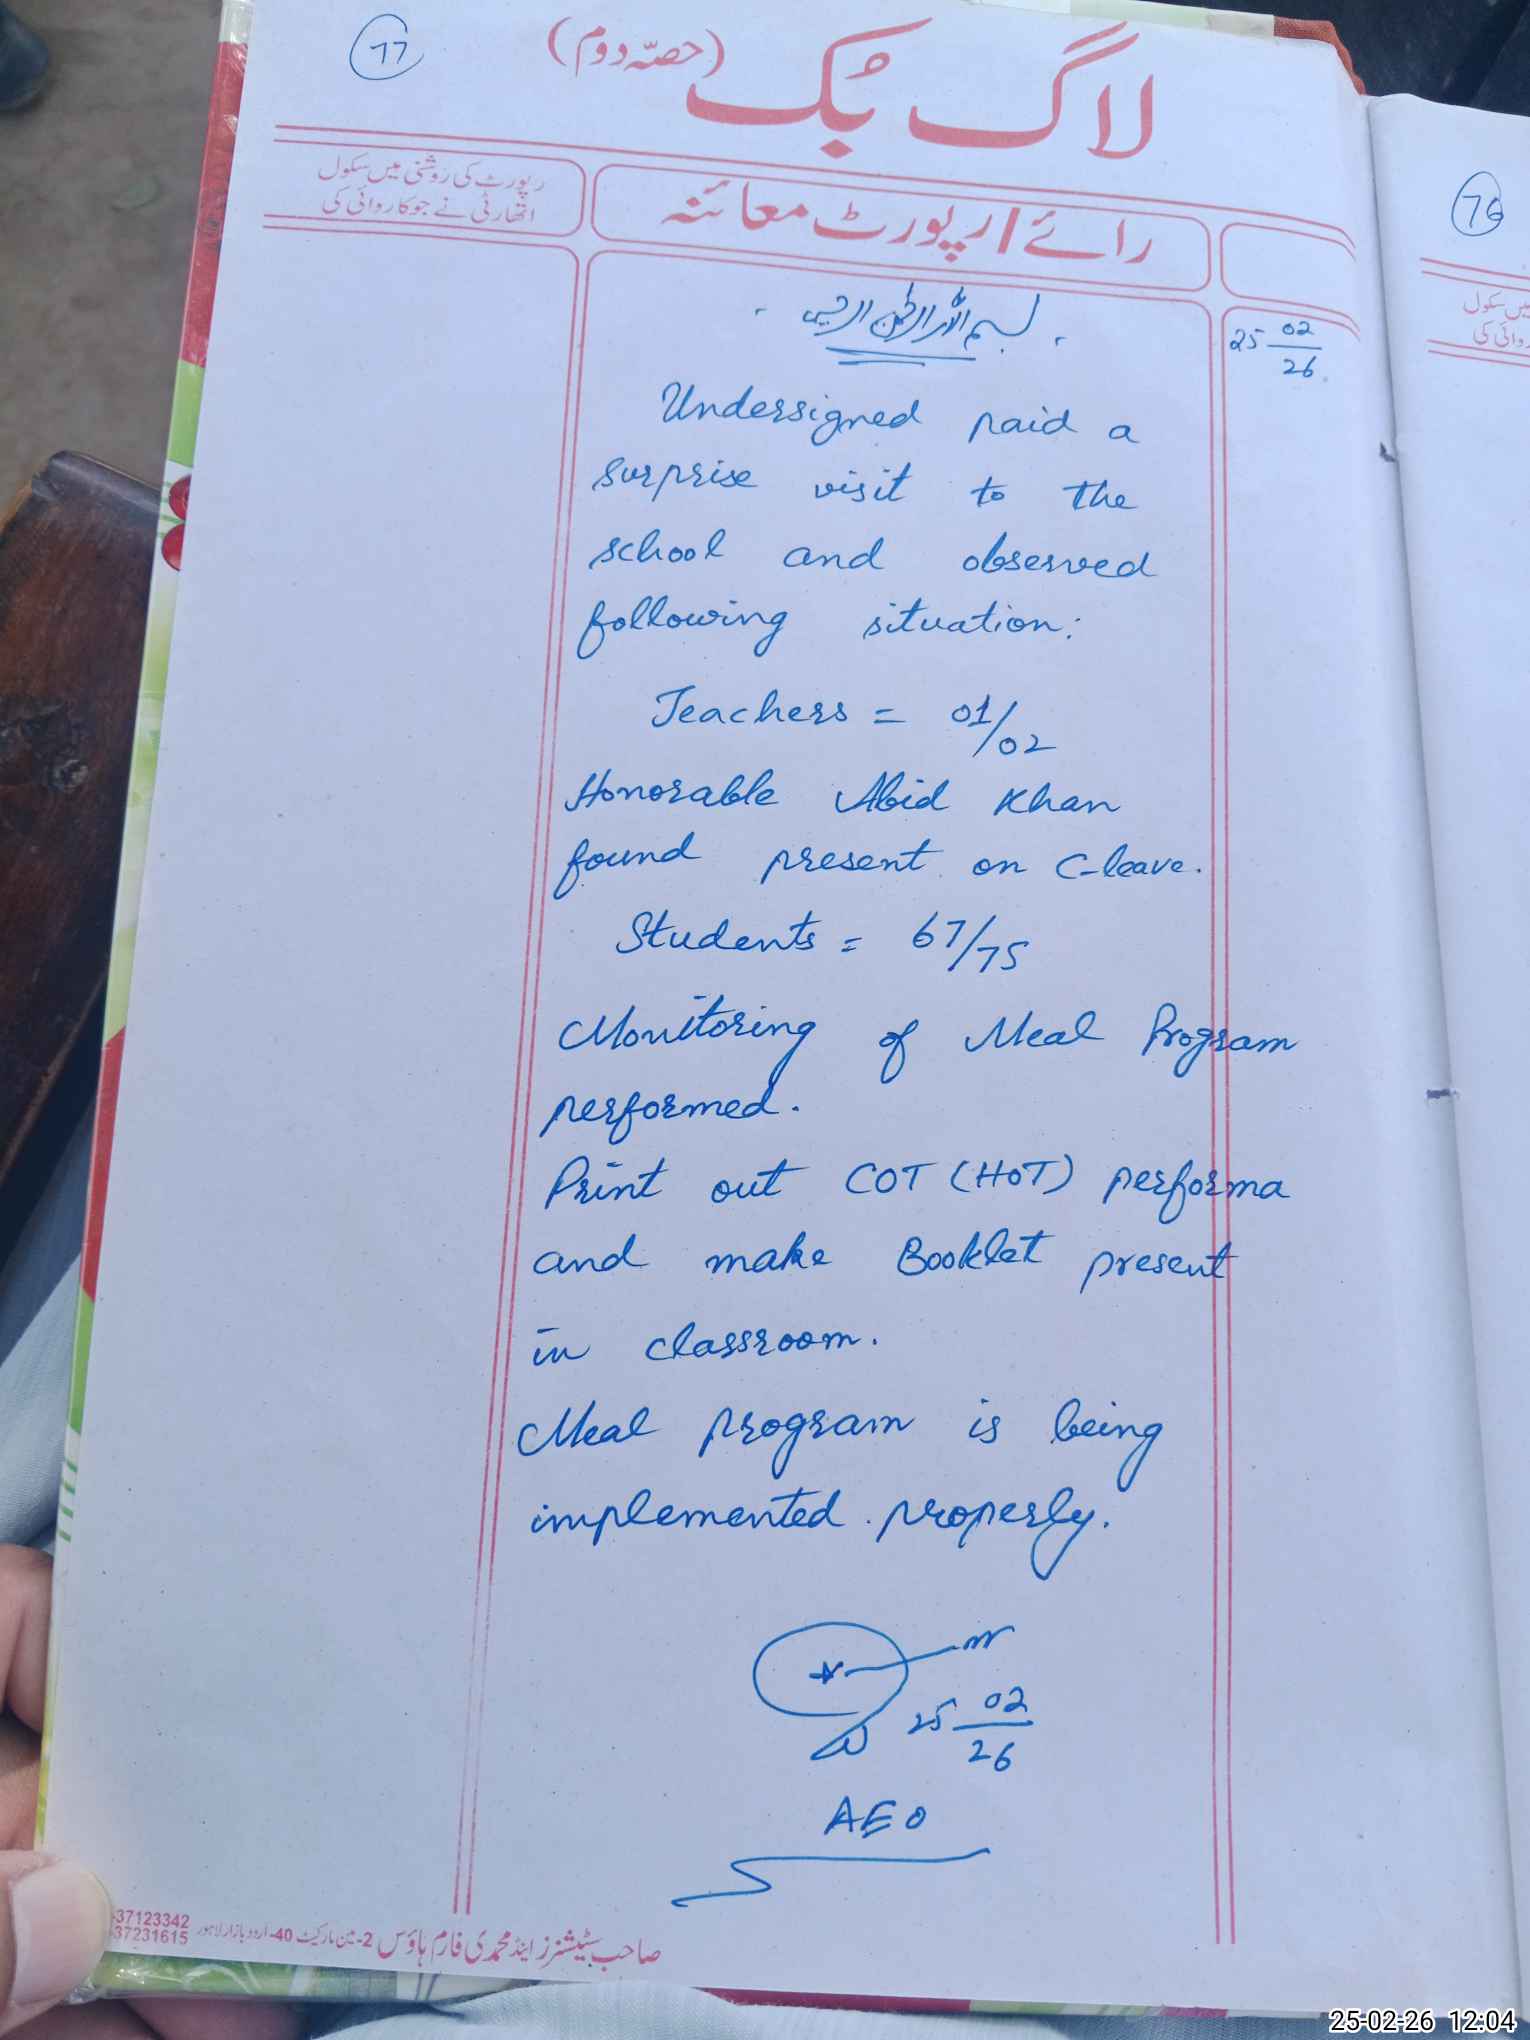 77
لاگ بک (حصّہ دوم)
رائے/رپورٹ معائنہ
رپورٹ کی روشنی میں سکول
اتھارٹی نے جو کاروائی کی
76
میں سکول
بسم اللہ الرحمٰن الرحیم
25 02/26
Undersigned paid a
surprise visit to the
school and observed
following situation:
Teachers = 01/02
Honorable Abid Khan
found present on C-leave.
Students = 67/75
Monitoring of Meal Program
performed.
Print out COT (HOT) performa
and make Booklet present
in classroom.
Meal program is being
implemented properly.
25 02/26
AEO
صاحب سٹیشنرز اینڈ محمدی فارم ہاؤس 2-مین مارکیٹ 40-اردو بازار لاہور
37123342
37231615
25-02-26 12:04